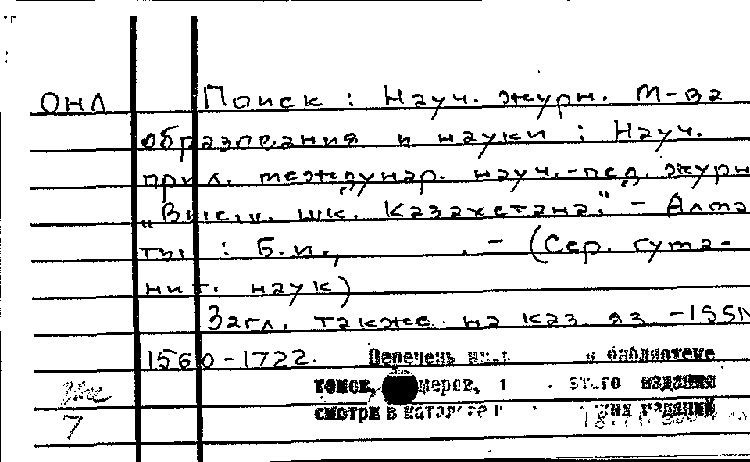 ОНЛ Поиск : Науч. журн. М-ва
образования и науки : Науч.
прил. междунар. науч.-пед. журн
„Высш. шк. Казахстана." - Алма
ты : Б.и., . - (Сер. гума-
нит. наук)
Загл. также на каз. яз - ISSN
1560-1722. Перечень в библиотеке
томов, номеров, этого издания
смотри в каталоге изданий
7